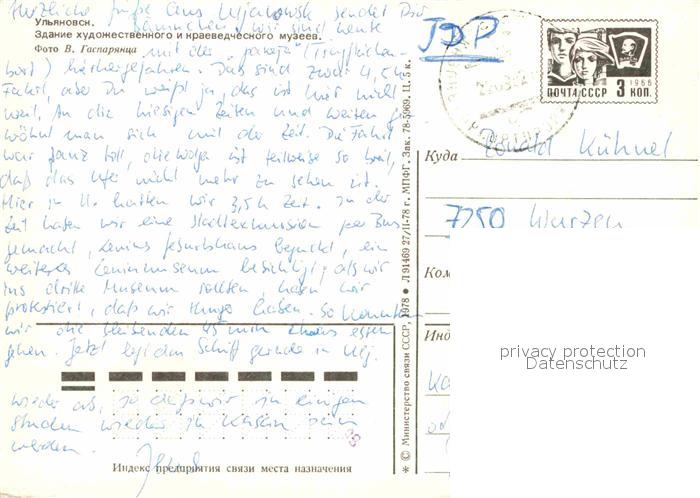 Herzliche Grüße aus Uljanowsk sendet Dir
Ульяновск.
wir sind heute
Здание художественного и краеведческого музеев.
Фото В. Гаспарянца
mit der "Raketa" (Tragflächen-
boot) hierhergefahren. Das sind zwar 4,5 h
Fahrt, aber Du weißt ja, das ist hier nicht
weit. An die hiesigen Zeiten und Weiten ge-
wöhnt man sich mit der Zeit. Die Fahrt
war ganz toll, die Wolga ist teilweise so breit,
daß das Ufer nicht mehr zu sehen ist.
Hier in U. hatten wir 3,5 h Zeit. In der
Zeit haben wir eine Stadtexkursion per Bus
gemacht, Lenins Geburtshaus besucht, ein
weiteres Leninmuseum besichtigt; als wir
ins dritte Museum sollten, haben wir
protestiert, daß wir Hunger haben. So konnten
wir die bleibenden 45 min etwas essen
gehen. Jetzt legt das Schiff gerade in Ulj.
wieder ab, so daß wir in einigen
Stunden wieder in Kasan sein
werden.
Индекс предприятия связи места назначения
* © Министерство связи СССР, 1978 • Л 91469 27/II-78 г. МПФГ. Зак. 78-5969. Ц. 5 к.
JDP
1966
ПОЧТА СССР 3 КОП.
Куда Ronald Kühnel
7250 Wurzen
Ком
Инд
privacy protection
Datenschutz